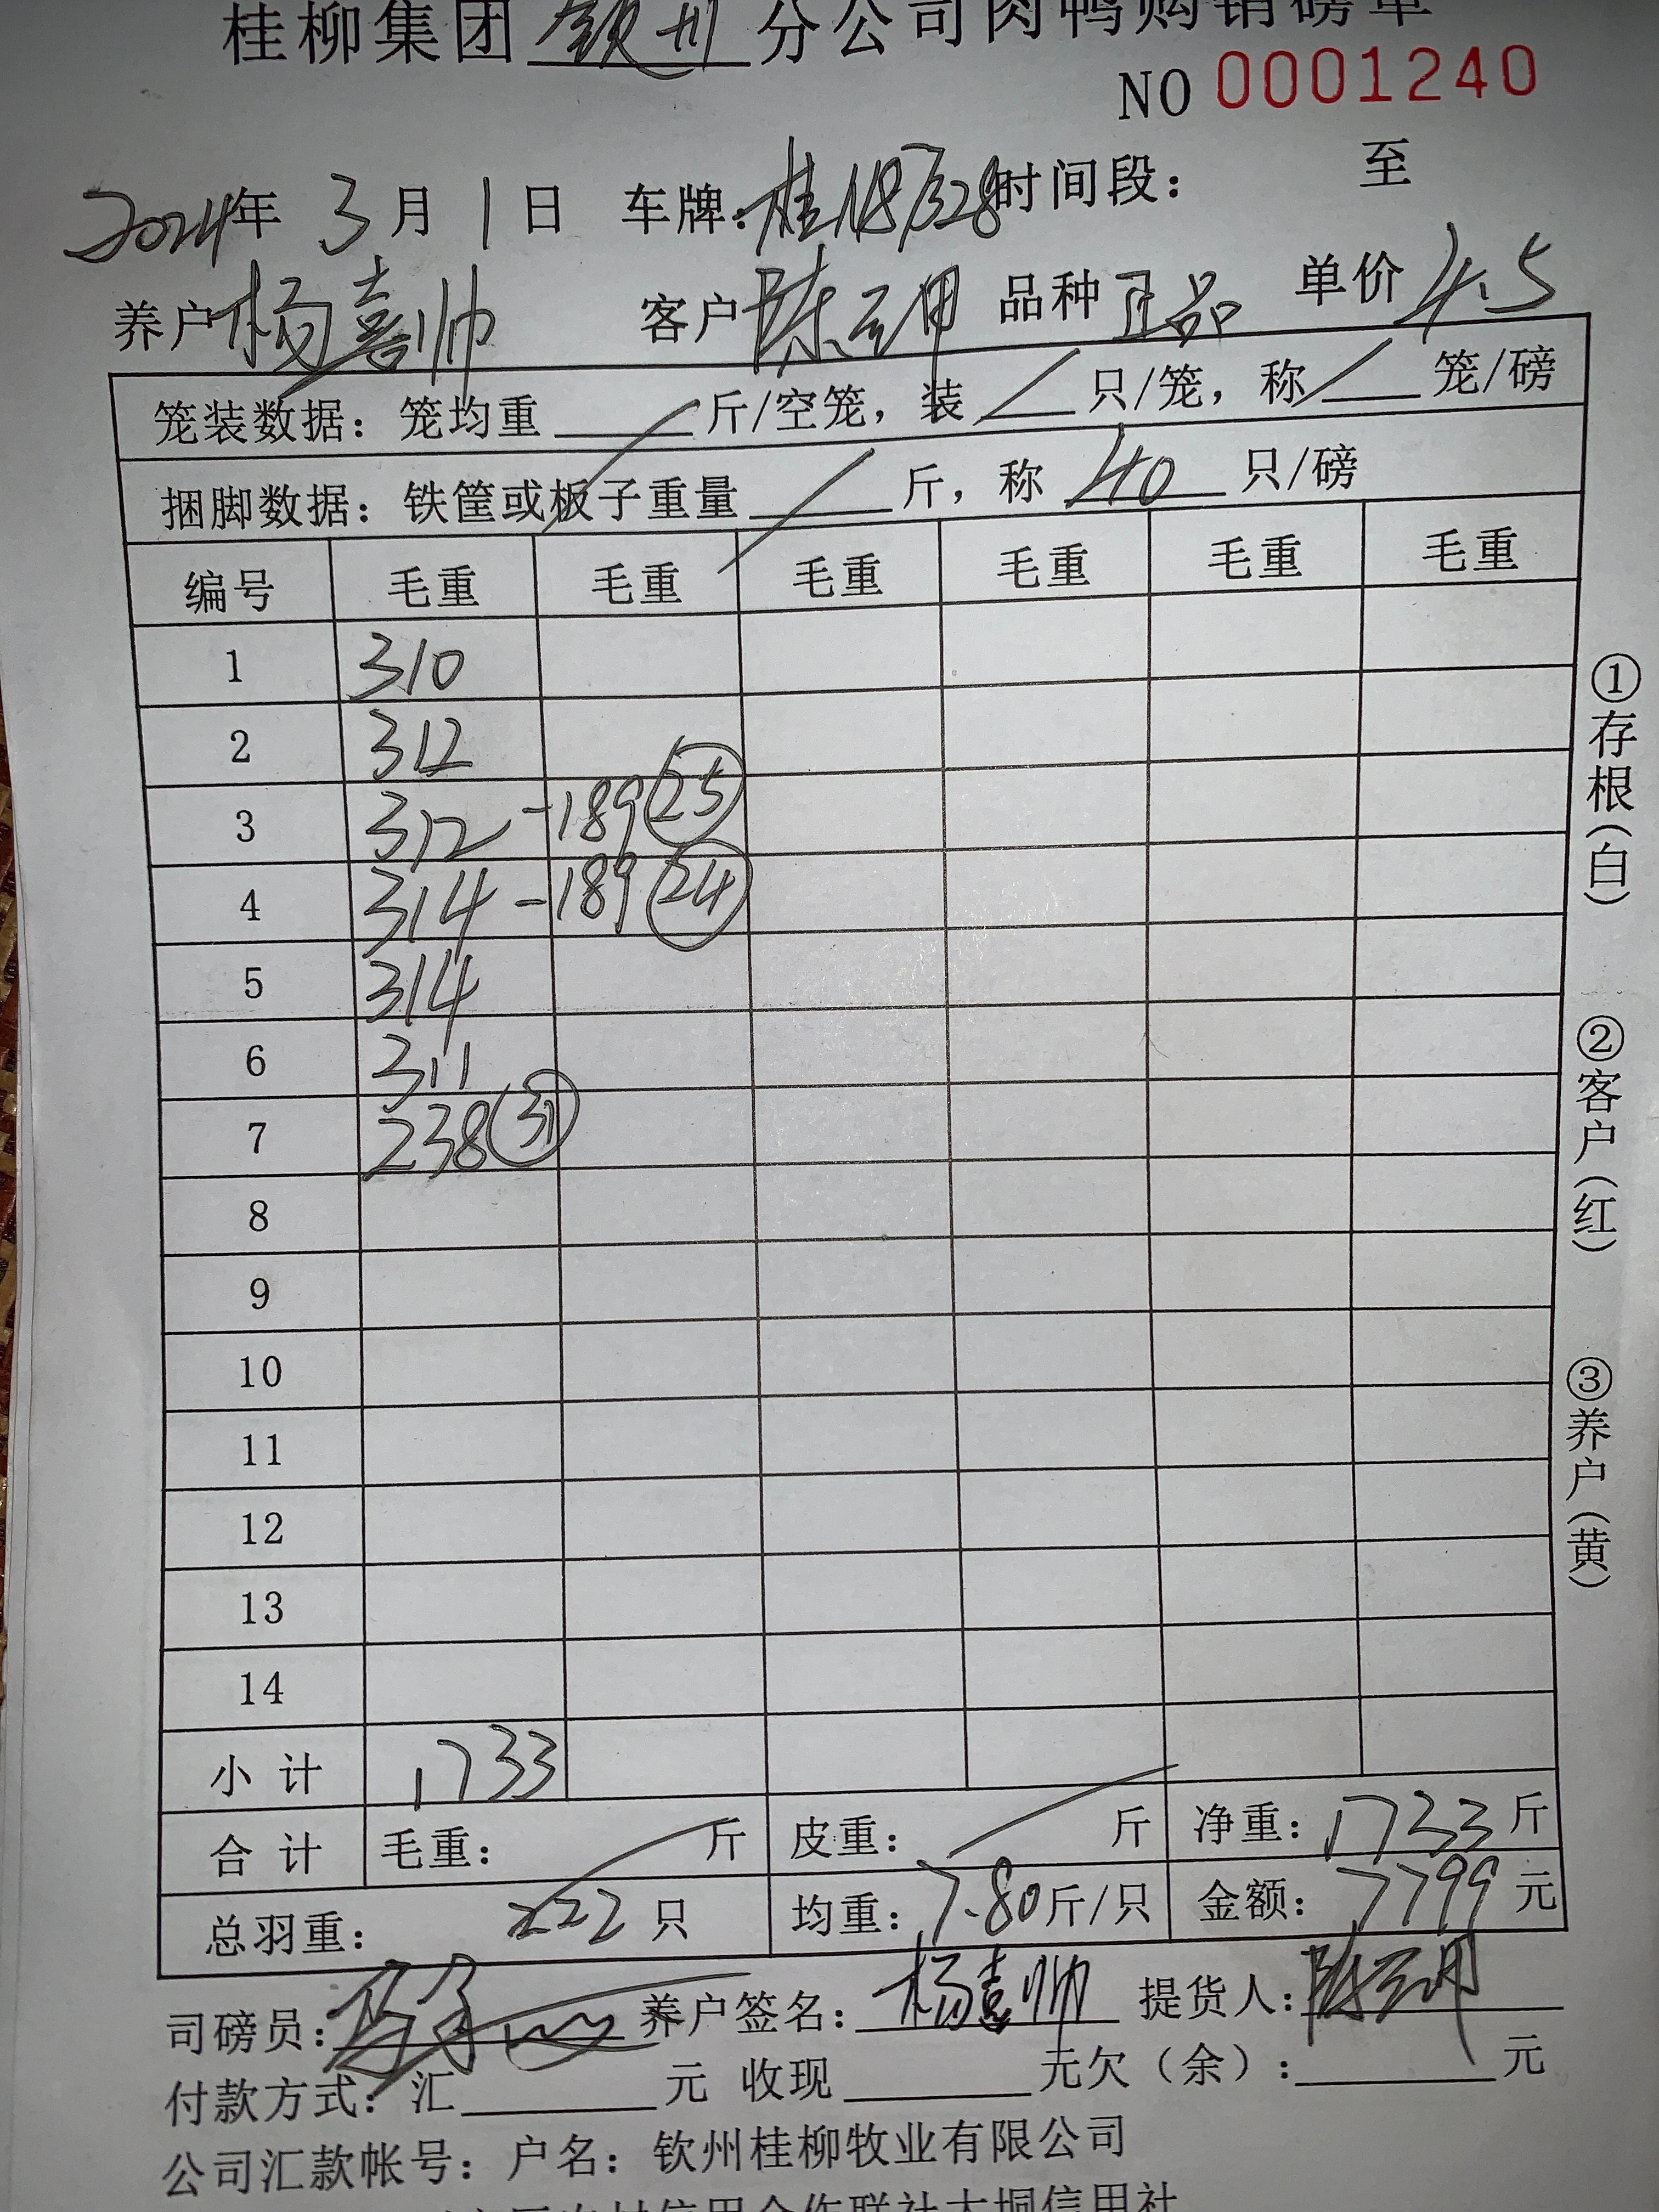 桂柳集团 钦州 分公司肉鸭购销磅单
NO 0001240
2024年 3月 1日 车牌:桂N87328 时间段: 至
养户 杨喜帅 客户 陈云明 品种 正品 单价 4.5
笼装数据:笼均重 / 斤/空笼,装 / 只/笼,称 / 笼/磅
捆脚数据:铁筐或板子重量 / 斤,称 40 只/磅
编号 毛重 毛重 毛重 毛重 毛重 毛重
1 310
2 312
3 312 -189 (25)
4 314 -189 (24)
5 314
6 311
7 238 (31)
8
9
10
11
12
13
14
小计 1733
合计 毛重: / 斤 皮重: / 斤 净重:1733斤
总羽重: 222只 均重:7.80斤/只 金额:7799元
司磅员: 养户签名:杨喜帅 提货人:陈云明
付款方式:汇 元 收现 元欠(余): 元
公司汇款帐号:户名:钦州桂柳牧业有限公司
①存根(白)
②客户(红)
③养户(黄)